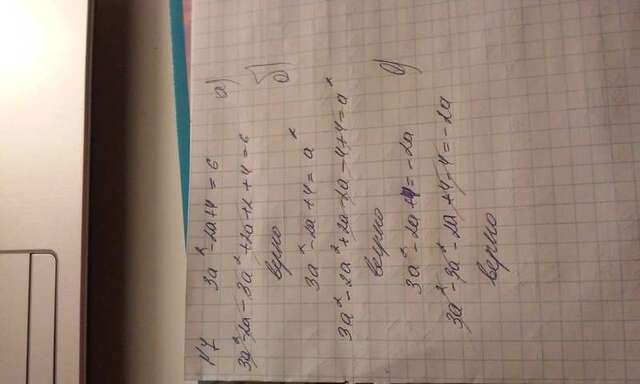 №7 3a² - 2a + 4 = 6 а)
3a² - 2a - 3a² + 2a + 2 + 4 = 6
верно б)
3a² - 2a + 4 = a²
3a² - 2a² + 2a - 2a - 4 + 4 = a²
верно
3a² - 2a + 4 = -2a в)
3a² - 3a² - 2a + 4 - 4 = -2a
верно